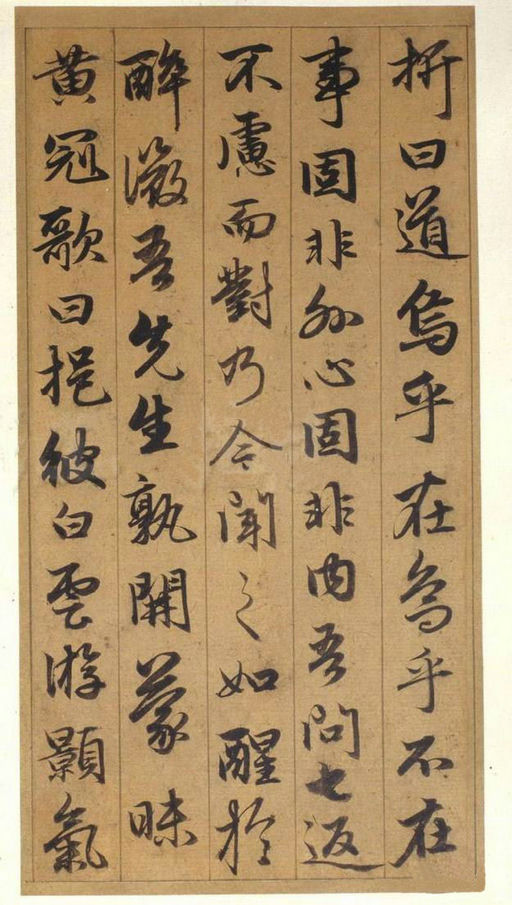 枅曰道烏乎在烏乎不在
事固非外心固非内吾问七返
不慮而對乃今聞之如醒於
醉微吾先生孰開蒙昧
黄冠歌曰挹彼白雲游顥氣